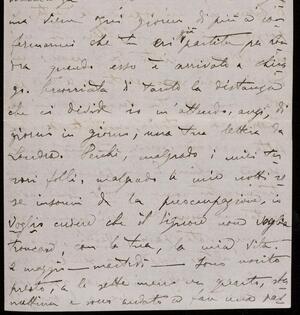 ma viene ogni giorno di più a con
fermarmi che tu eri già partita per Lon
dra quando esso è arrivato a Chica
go. Accorciata di tanto la distanza
che ci divide io m'attendo, anzi, di
giorno in giorno, una tua lettera da
Londra. Perchè, malgrado i miei ter
rori folli, malgrado le mie notti re
se insonni da la preoccupazione, io
voglio credere che il Signore non voglia
troncare, con la tua, la mia vita.
maggio — martedì — Sono uscito
presto, a le sette meno un quarto, sta
mattina e sono andato a fare una pas